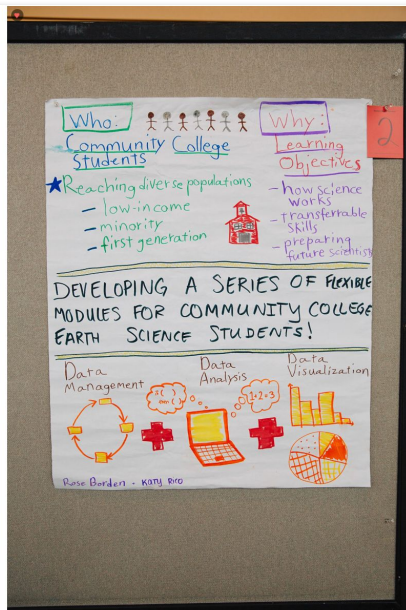 Who:
Community College
Students
Reaching diverse populations
- low-income
- minority
- first generation
Why:
Learning
Objectives
- how science
works
- transferrable
skills
- preparing
future scientists
2
DEVELOPING A SERIES OF FLEXIBLE
MODULES FOR COMMUNITY COLLEGE
EARTH SCIENCE STUDENTS!
Data
Management
Data
Analysis
Data
Visualization
1+2=3
Rose Borden - Katy Rico